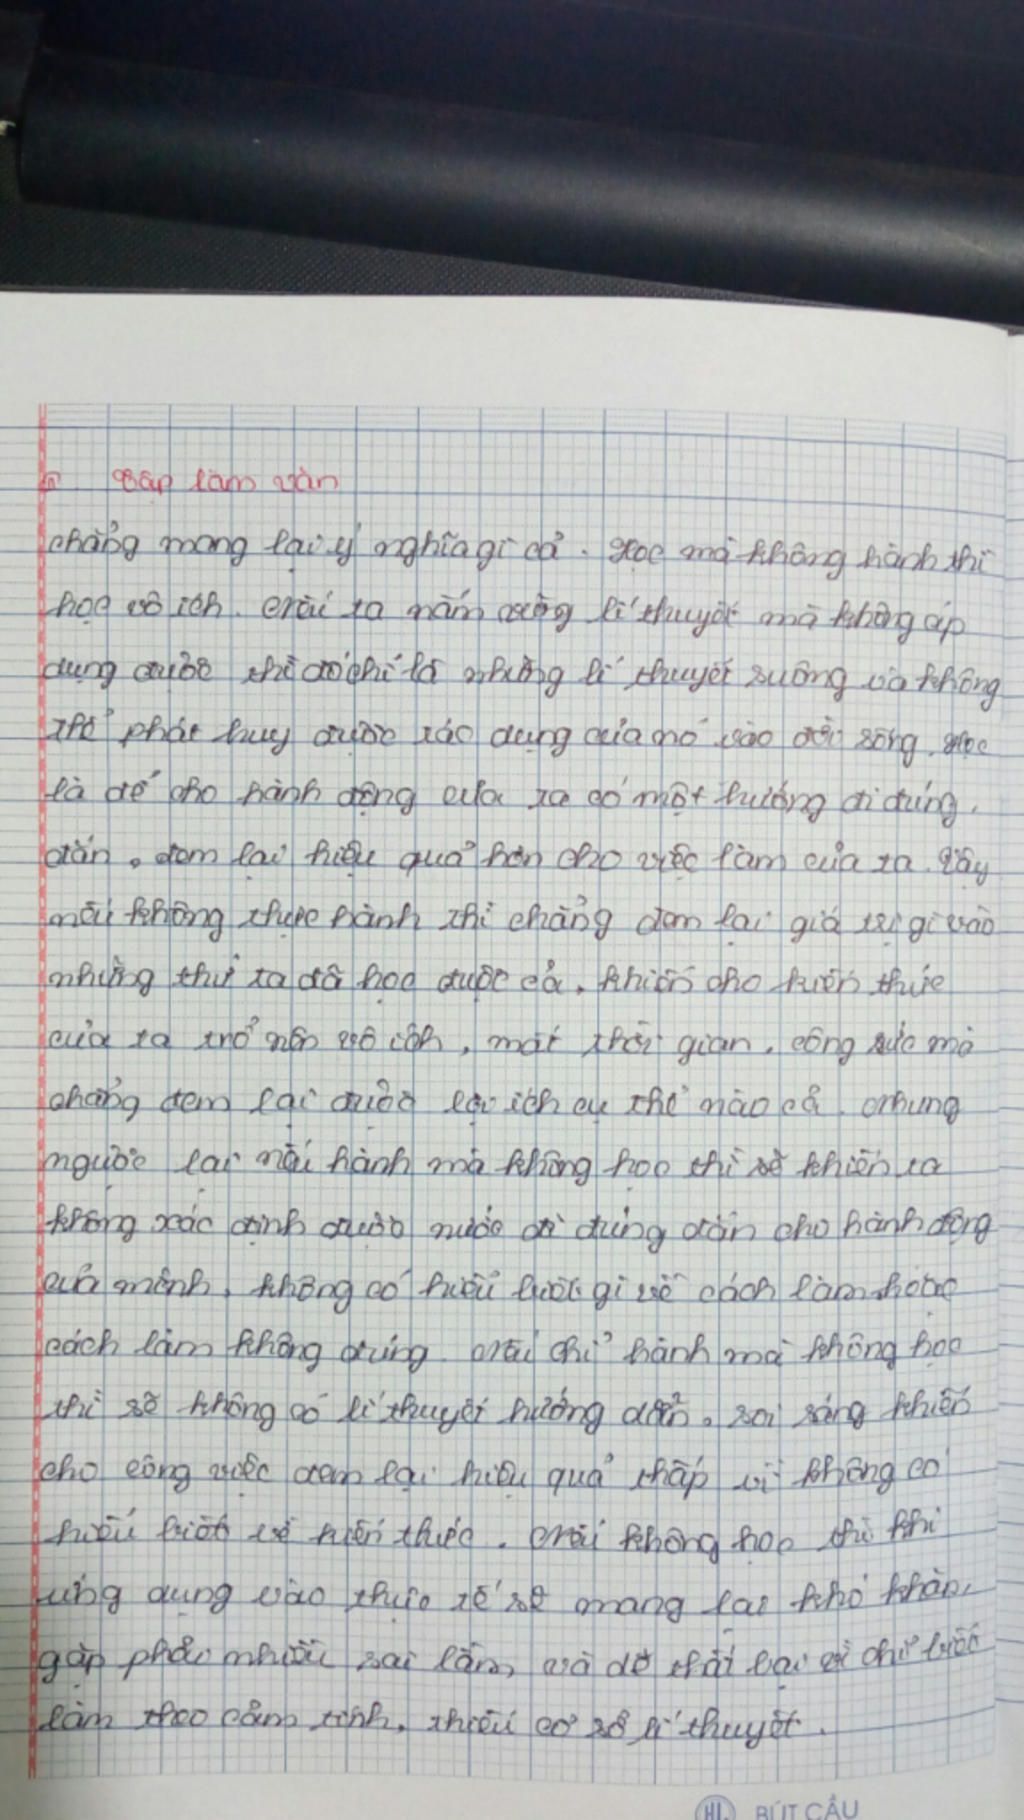 Tập làm văn
chẳng mang lại ý nghĩa gì cả. Học mà không hành thì
học vô ích. Nếu ta nắm vững lí thuyết mà không áp
dụng được thì đó chỉ là những lí thuyết suông và không
thể phát huy được tác dụng của nó vào đời sống. Học
là để cho hành động của ta có một hướng đi đúng
đắn, đem lại hiệu quả hơn cho việc làm của ta. Vậy
nếu không thực hành thì chẳng đem lại giá trị gì vào
những thứ ta đã học được cả, khiến cho kiến thức
của ta trở nên vô ích, mất thời gian, công sức mà
chẳng đem lại được lợi ích cụ thể nào cả. Nhưng
ngược lại nếu hành mà không học thì sẽ khiến ta
không xác định được nước đi đúng đắn cho hành động
của mình, không có hiểu biết gì về cách làm hoặc
cách làm không đúng. Nếu chỉ hành mà không học
thì sẽ không có lí thuyết hướng dẫn, soi sáng khiến
cho công việc đem lại hiệu quả thấp vì không có
hiểu biết về kiến thức. Nếu không học thì khi
ứng dụng vào thực tế sẽ mang lại khó khăn,
gặp phải nhiều sai lầm và dễ thất bại vì chỉ biết
làm theo cảm tính, thiếu cơ sở lí thuyết.
BÚT CẦU